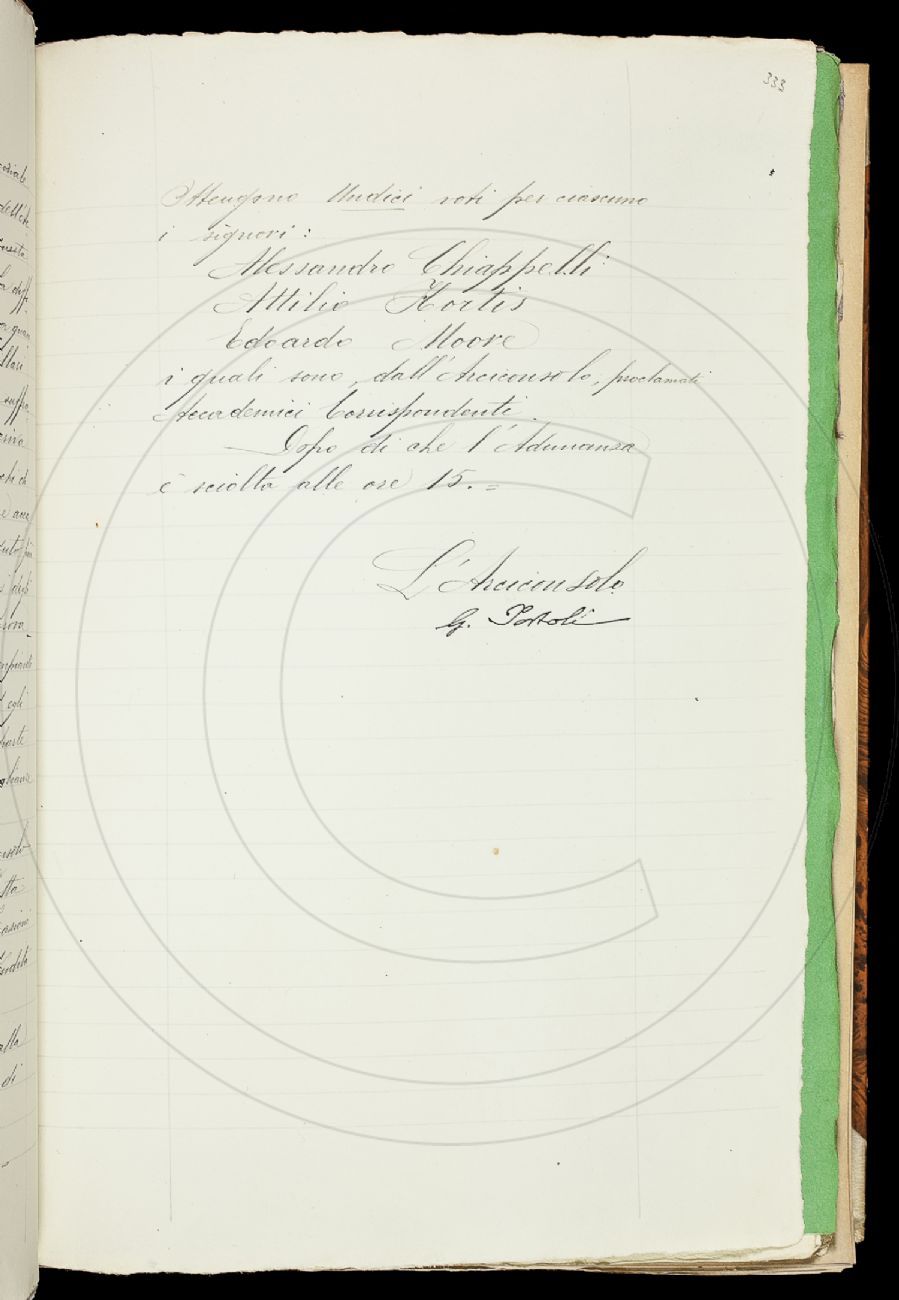 333
Ottengono Undici voti per ciascuno
i signori:
Alessandro Chiappelli
Attilio Hortis
Edoardo Moore
i quali sono, dall'Arciconsolo, proclamati
Accademici Corrispondenti.
Dopo di che l'Adunanza
è sciolta alle ore 15.=
L'Arciconsolo
G.